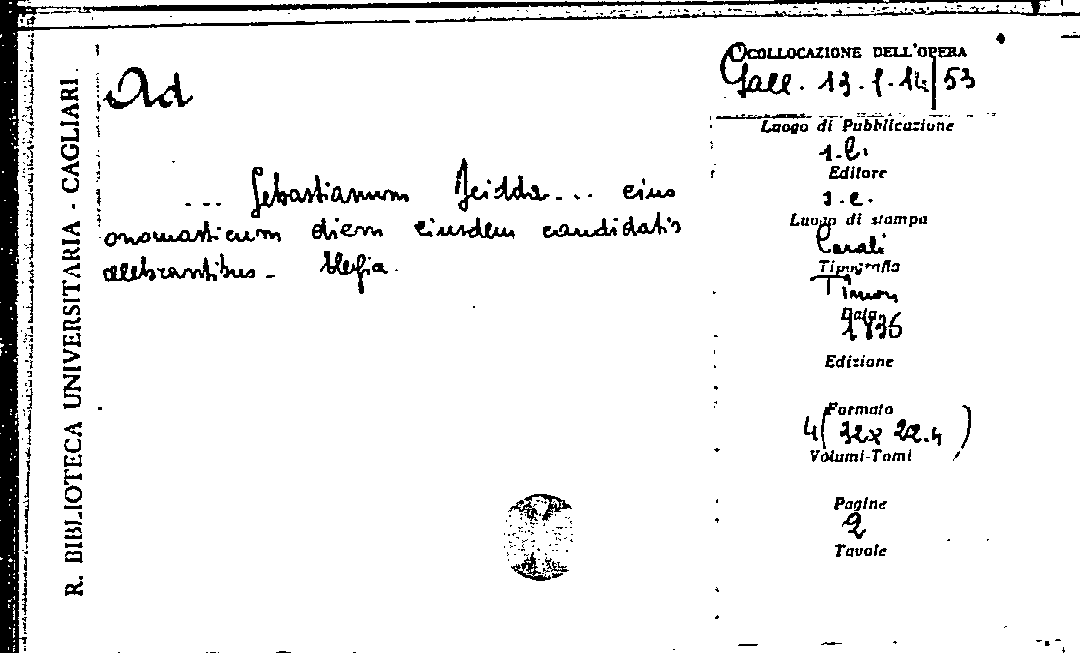 R. BIBLIOTECA UNIVERSITARIA - CAGLIARI
Ad
... Sebastianum Deidda ... eius
onomasticum diem eiusdem candidatis
celebrantibus -
COLLOCAZIONE DELL'OPERA
Gall. 13. 1. 14/53
Luogo di Pubblicazione
s.l.
Editore
s.e.
Luogo di stampa
Carali
Tipografia
Timon
Data
1836
Edizione
Formato
4 (32 x 22.4)
Volumi-Tomi
Pagine
2
Tavole